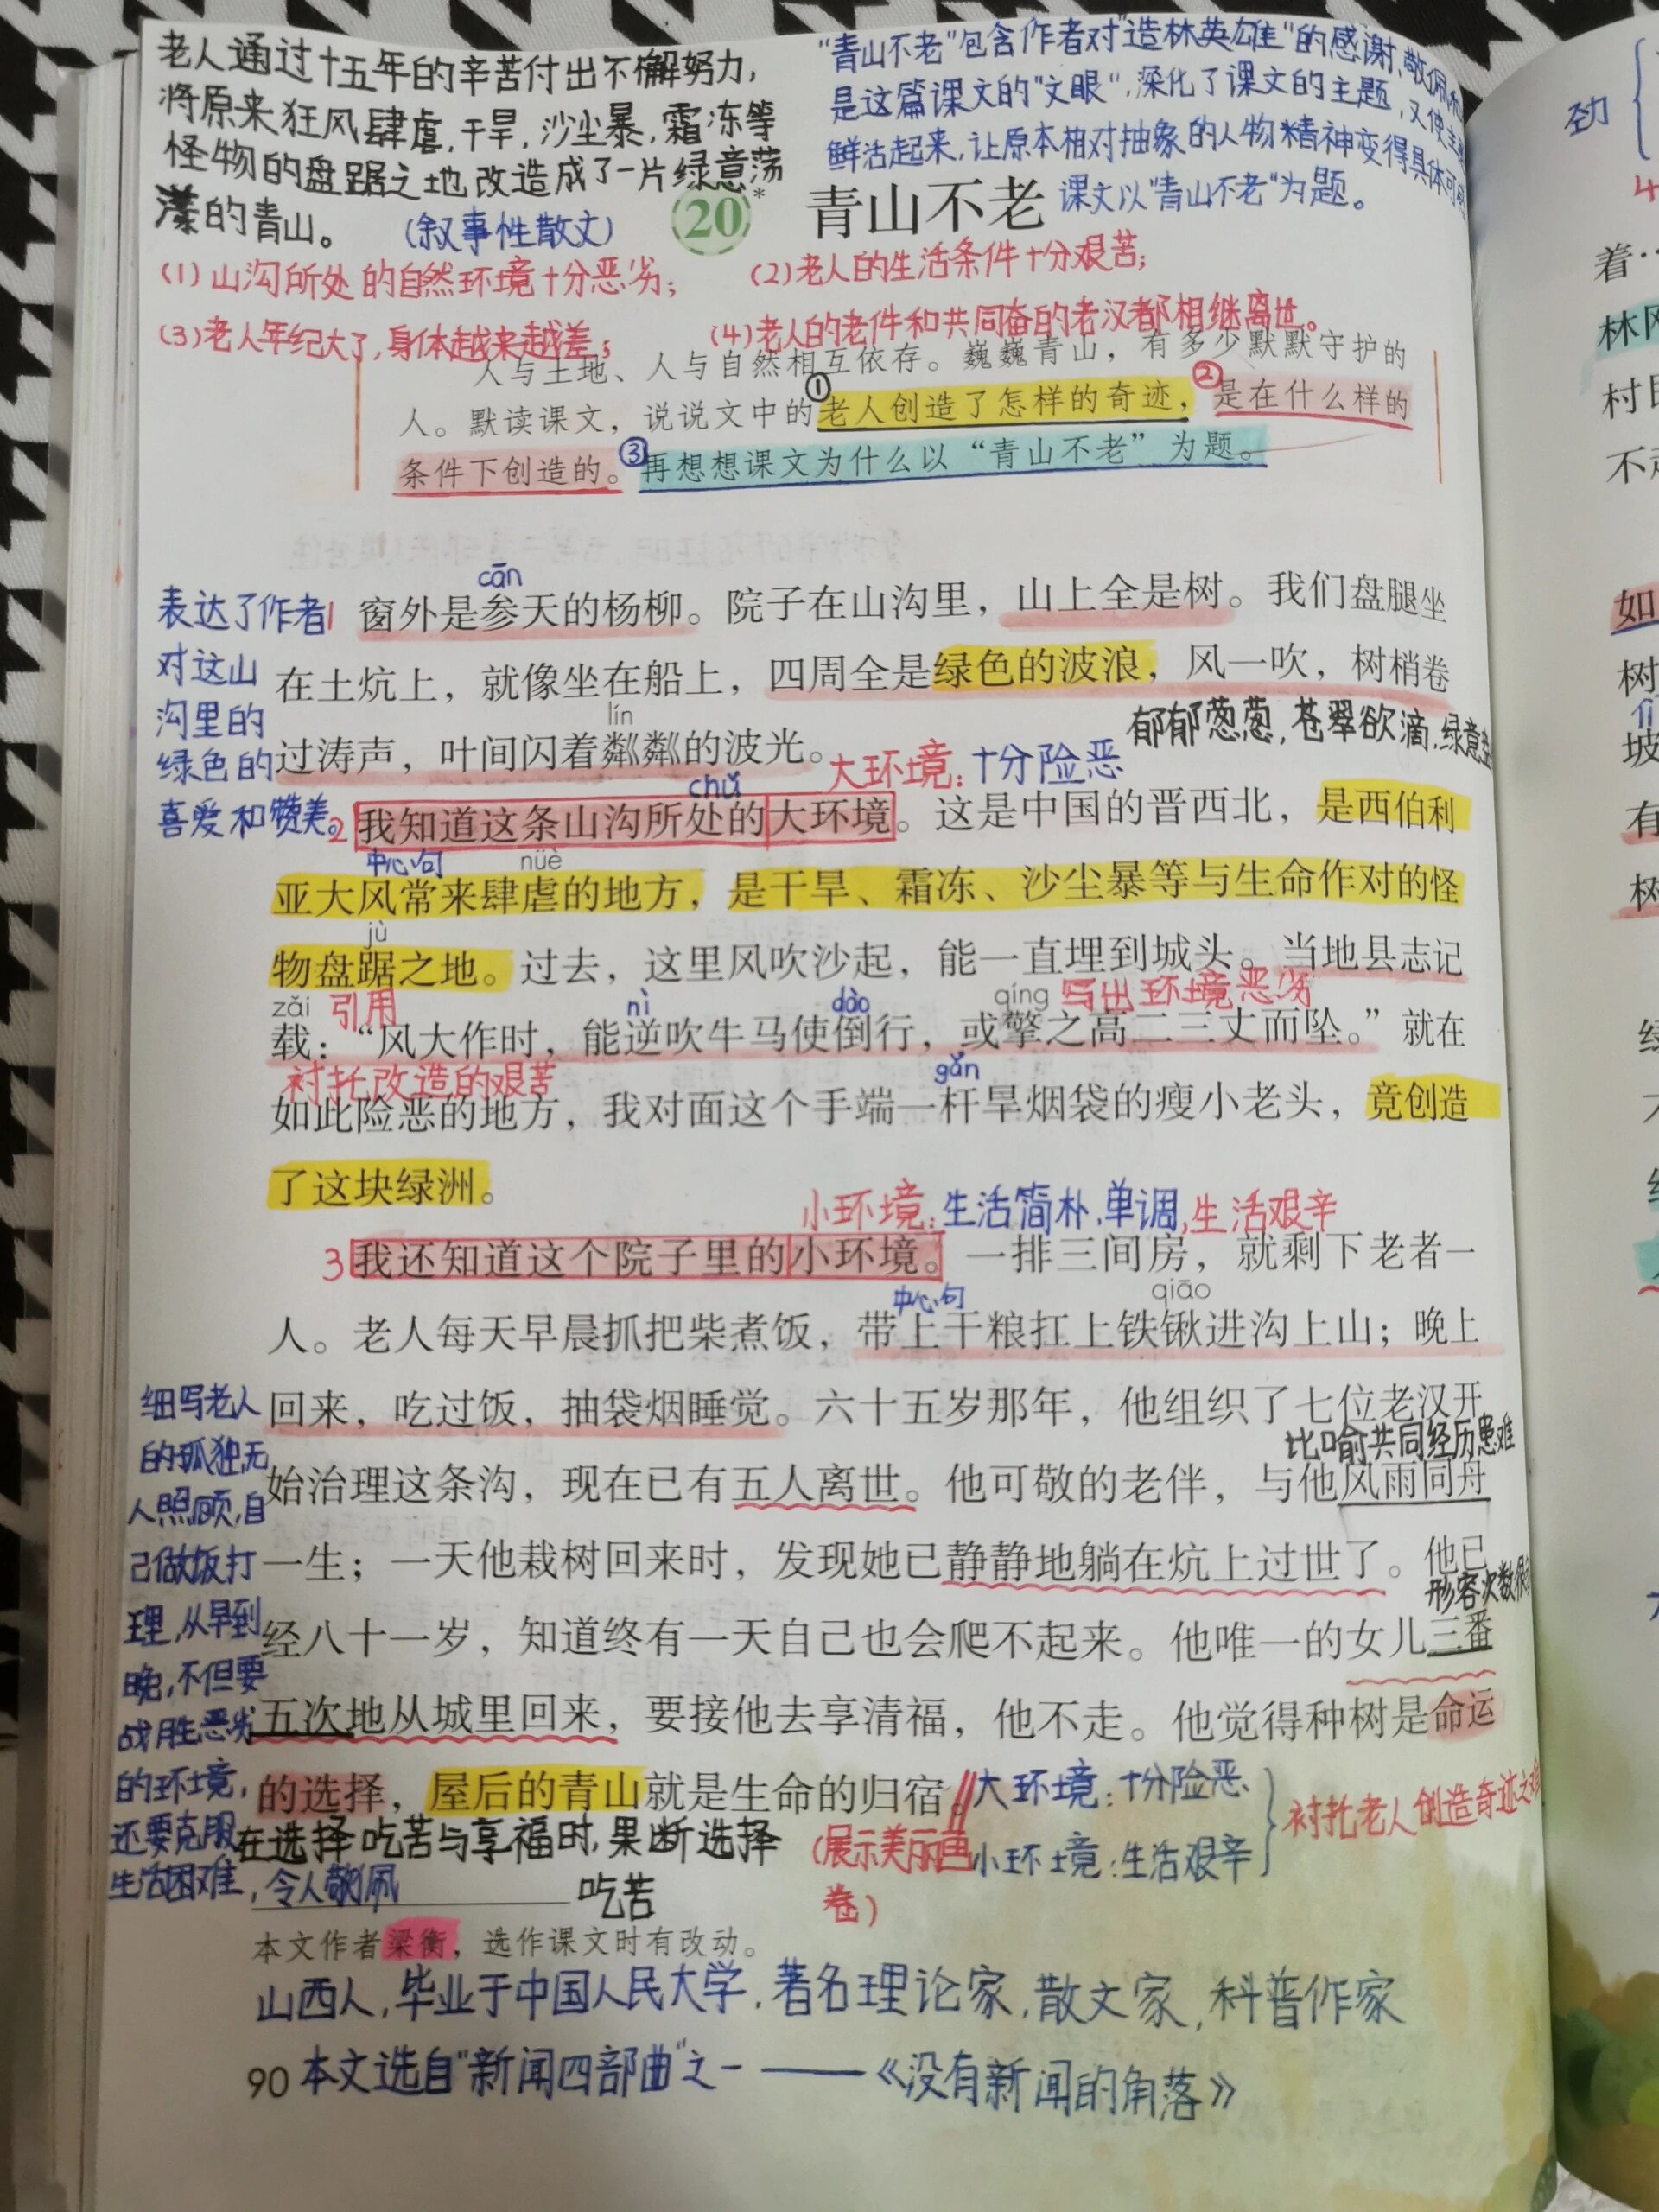 老人通过十五年的辛苦付出不懈努力,
将原来狂风肆虐,干旱,沙尘暴,霜冻等
怪物的盘踞之地改造成了一片绿意荡
漾的青山。
(叙事性散文)
"青山不老"包含作者对"造林英雄"的感谢,敬佩和
是这篇课文的"文眼",深化了课文的主题,又使
鲜活起来,让原本相对抽象的人物精神变得具体可
课文以"青山不老"为题。
20* 青山不老
(1)山沟所处的自然环境十分恶劣;
(2)老人的生活条件十分艰苦;
(3)老人年纪大了,身体越来越差;
(4)老人的老件和共同奋的老汉都相继离世。
人与土地、人与自然相互依存。巍巍青山,有多少默默守护的
人。默读课文,说说文中的①老人创造了怎样的奇迹,②是在什么样的
条件下创造的。③再想想课文为什么以“青山不老”为题。
cān
1 窗外是参天的杨柳。院子在山沟里,山上全是树。我们盘腿坐
在土炕上,就像坐在船上,四周全是绿色的波浪,风一吹,树梢卷
lín
过涛声,叶间闪着粼粼的波光。
郁郁葱葱,苍翠欲滴,绿意
表达了作者
对这山
沟里的
绿色的
喜爱和赞美。
大环境:十分险恶
chǔ
2 我知道这条山沟所处的大环境。这是中国的晋西北,是西伯利
中心句
nüè
亚大风常来肆虐的地方,是干旱、霜冻、沙尘暴等与生命作对的怪
jù
物盘踞之地。过去,这里风吹沙起,能一直埋到城头。当地县志记
zǎi 引用 nì dào qíng 写出环境恶劣
载:“风大作时,能逆吹牛马使倒行,或擎之高二三丈而坠。”就在
衬托改造的艰苦 gǎn
如此险恶的地方,我对面这个手端一杆旱烟袋的瘦小老头,竟创造
了这块绿洲。
小环境:生活简朴,单调,生活艰辛
3 我还知道这个院子里的小环境。一排三间房,就剩下老者一
中心句 qiāo
人。老人每天早晨抓把柴煮饭,带上干粮扛上铁锹进沟上山;晚上
回来,吃过饭,抽袋烟睡觉。六十五岁那年,他组织了七位老汉开
比喻共同经历患难
始治理这条沟,现在已有五人离世。他可敬的老伴,与他风雨同舟
一生;一天他栽树回来时,发现她已静静地躺在炕上过世了。他已
形容次数很
经八十一岁,知道终有一天自己也会爬不起来。他唯一的女儿三番
五次地从城里回来,要接他去享清福,他不走。他觉得种树是命运
的选择,屋后的青山就是生命的归宿。
细写老人
的孤独无
人照顾,自
己做饭打
理,从早到
晚,不但要
战胜恶劣
的环境,
还要克服
生活困难,令人敬佩
在选择吃苦与享福时,果断选择
吃苦
(展示美丽画
卷)
大环境:十分险恶
小环境:生活艰辛
衬托老人创造奇迹之
本文作者梁衡,选作课文时有改动。
山西人,毕业于中国人民大学,著名理论家,散文家,科普作家
90 本文选自"新闻四部曲"之一——《没有新闻的角落》
劲
着…
村
不
如
树
们
坡
有